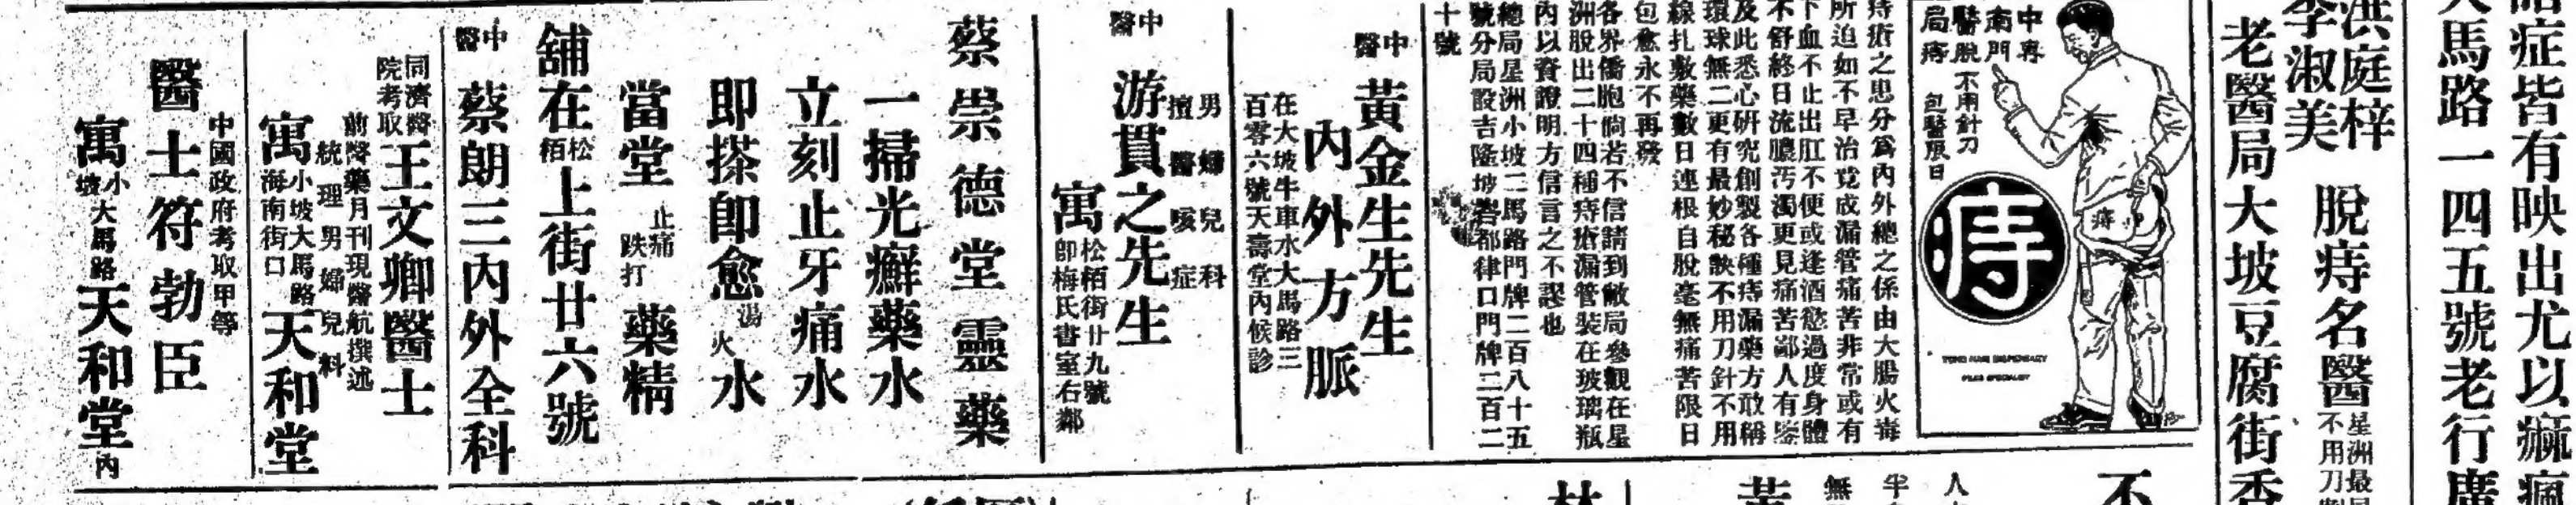 症皆有映出尤以痲瘋
大馬路一四五號老行廣
洪庭梓
李淑美
脫痔名醫
星洲最
不用刀
老醫局大坡豆腐街香
中南醫局
專門脫痔
不用針刀
包醫限日
痔
痔
痔瘡之患分爲內外總之係由大腸火毒
所迫如不早治竟成漏管痛苦非常或有
下血不止出肛不便或逢酒慾過度身體
不舒終日流膿汚濁更見痛苦鄙人有鑒
及此悉心研究創製各種痔漏藥方敢稱
環球無二更有最妙秘訣不用刀針不用
線扎敷藥數日連根自脫毫無痛苦限日
包愈永不再發
各界僑胞倘若不信請到敝局參觀在星
洲脫出二十四種痔瘡漏管裝在玻璃瓶
內以資證明方信言之不謬也
總局星洲小坡二馬路門牌二百八十五
號分局設吉隆坡峇都律口門牌二百二
十號
中醫
黃金生先生
內外方脈
在大坡牛車水大馬路三
百零六號天壽堂內候診
男婦兒科
擅醫咳症
中醫
游貫之先生
寓
松栢街廿九號
即梅氏書室右鄰
蔡崇德堂靈藥
一掃光癬藥水
立刻止牙痛水
即搽即愈湯火水
當堂止痛跌打藥精
舖在松栢上街廿六號
中醫
蔡朗三內外全科
同濟醫
院考取
王文卿醫士
前醫藥月刊現醫航撰述
統理男婦兒科
寓
小坡大馬路
海南街口
天和堂
中國政府考取甲等
醫士符勃臣
寓小坡大馬路天和堂內
不
人
半
無
黃
林